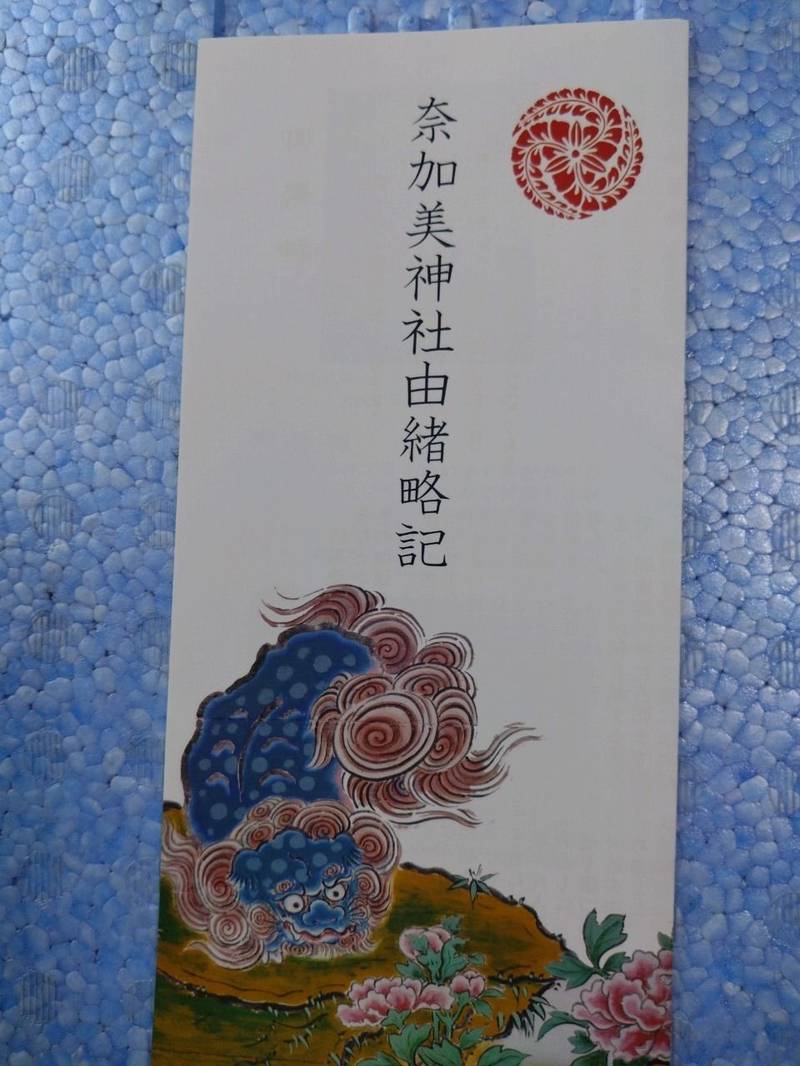 奈加美神社由緒略記